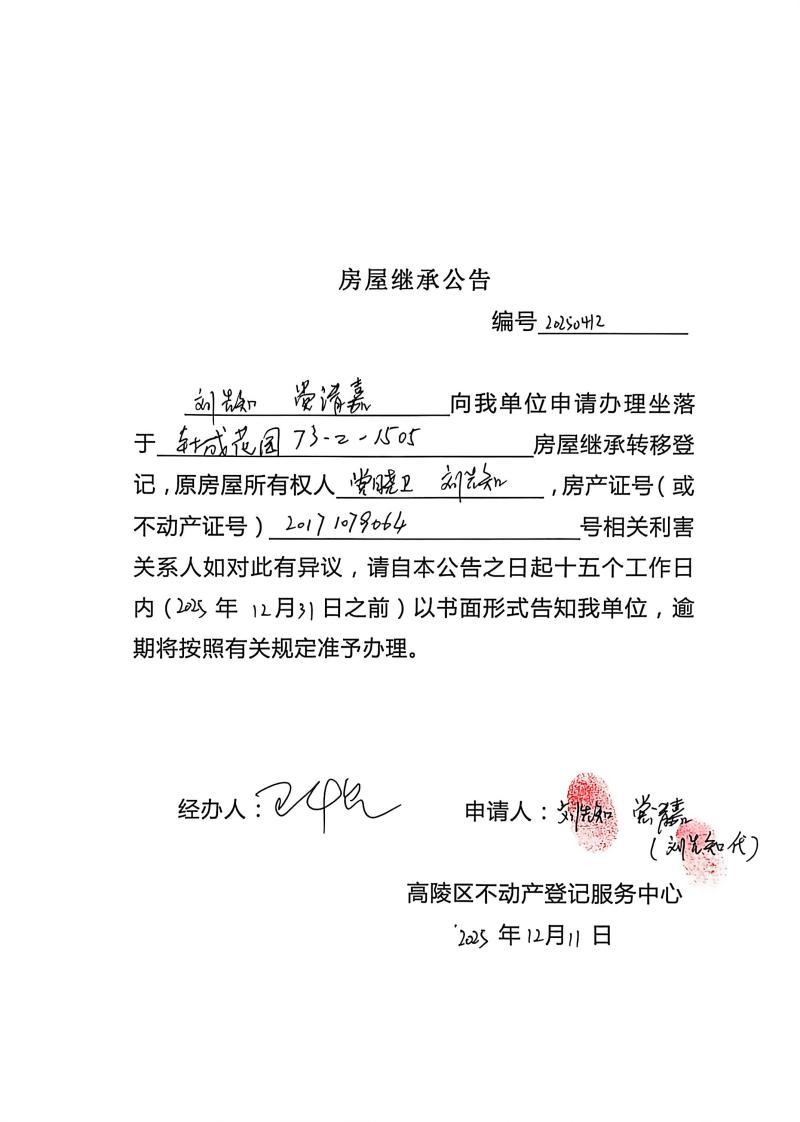 房屋继承公告
编号 20250412
刘 知 党清嘉 向我单位申请办理坐落
于 轩成花园 73-2-1505 房屋继承转移登
记，原房屋所有权人 党晓卫 刘 知 ，房产证号（或
不动产证号） 2017 1079064 号相关利害
关系人如对此有异议，请自本公告之日起十五个工作日
内（2025 年 12月31日之前）以书面形式告知我单位，逾
期将按照有关规定准予办理。
经办人： 申请人：刘 知 党 嘉
（刘 知代）
高陵区不动产登记服务中心
2025 年12月11 日